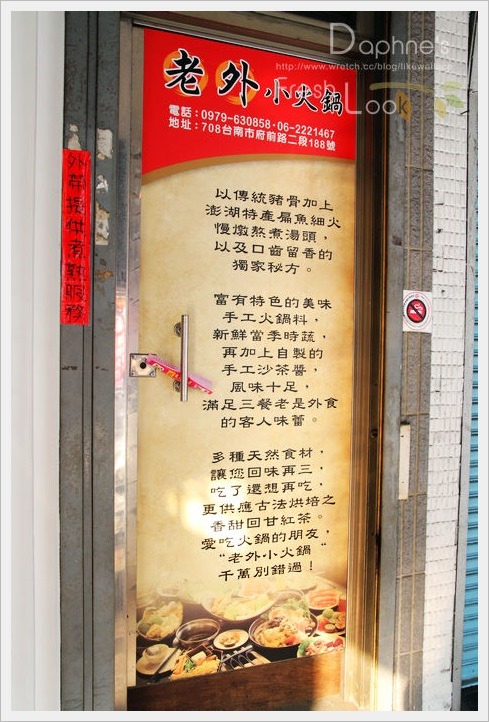 Daphne's
http://www.wretch.cc/blog/likewallace
Fresh
Look
老外小火鍋
電話：0979-630858·06-2221467
地址：708台南市府前路二段188號
外帶提供煮熟服務
以傳統豬骨加上
澎湖特產扁魚細火
慢燉熬煮湯頭，
以及口齒留香的
獨家秘方。
富有特色的美味
手工火鍋料，
新鮮當季時蔬，
再加上自製的
手工沙茶醬，
風味十足，
滿足三餐老是外食
的客人味蕾。
多種天然食材，
讓您回味再三，
吃了還想再吃，
更供應古法烘培之
香甜回甘紅茶。
愛吃火鍋的朋友，
“老外小火鍋“
千萬別錯過！